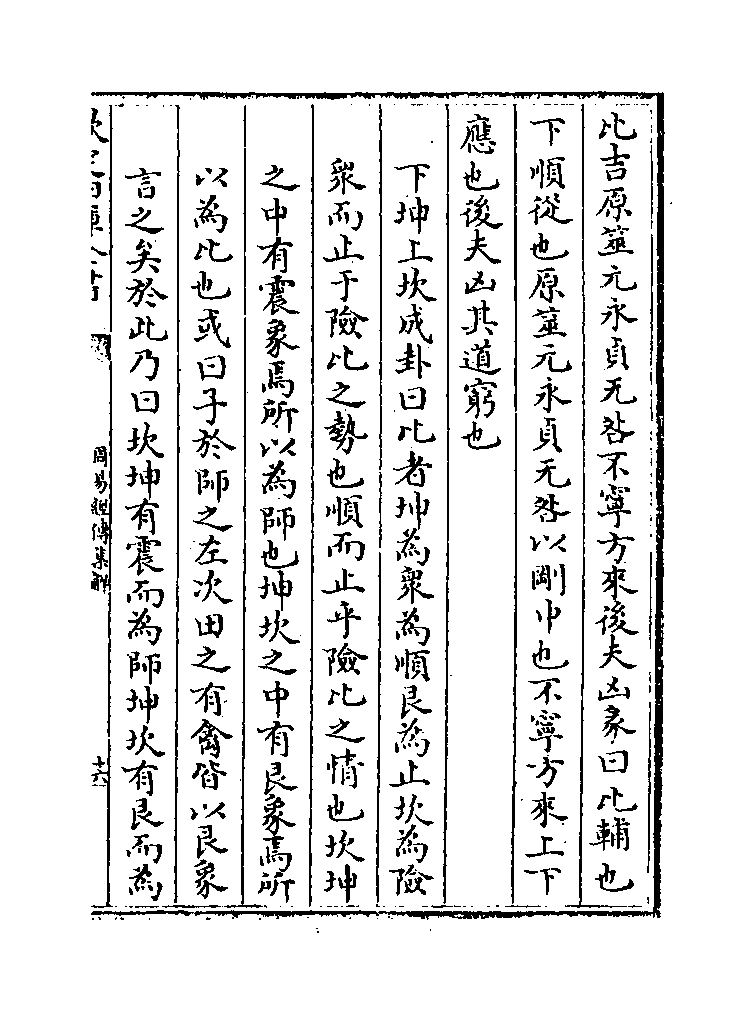 比吉原筮元永貞无咎不寧方來後夫凶彖曰比輔也
下順從也原筮元永貞无咎以剛中也不寧方來上下
應也後夫凶其道窮也
下坤上坎成卦曰比者坤為衆為順艮為止坎為險
衆而止于險比之勢也順而止乎險比之情也坎坤
之中有震象焉所以為師也坤坎之中有艮象焉所
以為比也或曰子於師之左次田之有禽皆以艮象
言之矣於此乃曰坎坤有震而為師坤坎有艮而為
欽定四庫全書
周易經傳集解
十六